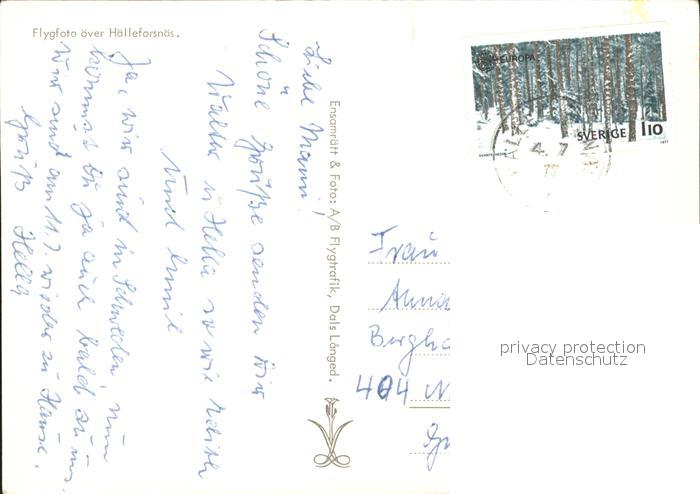 Flygfoto över Hälleforsnäs.
Liebe Mami!
Schöne Grüße senden Dir
Walter u. Hella sowie
und
Ja, wir sind in Schweden, nun
kommst du ja auch bald zu uns.
Wir sind am 11.7. wieder zu Hause.
Gruß Hella
Ensamrätt & Foto: A/B Flygtrafik, Dals Långed.
EUROPA
SVERIGE 110
1977
4 7
77
Frau
Anna
404 N
privacy protection
Datenschutz